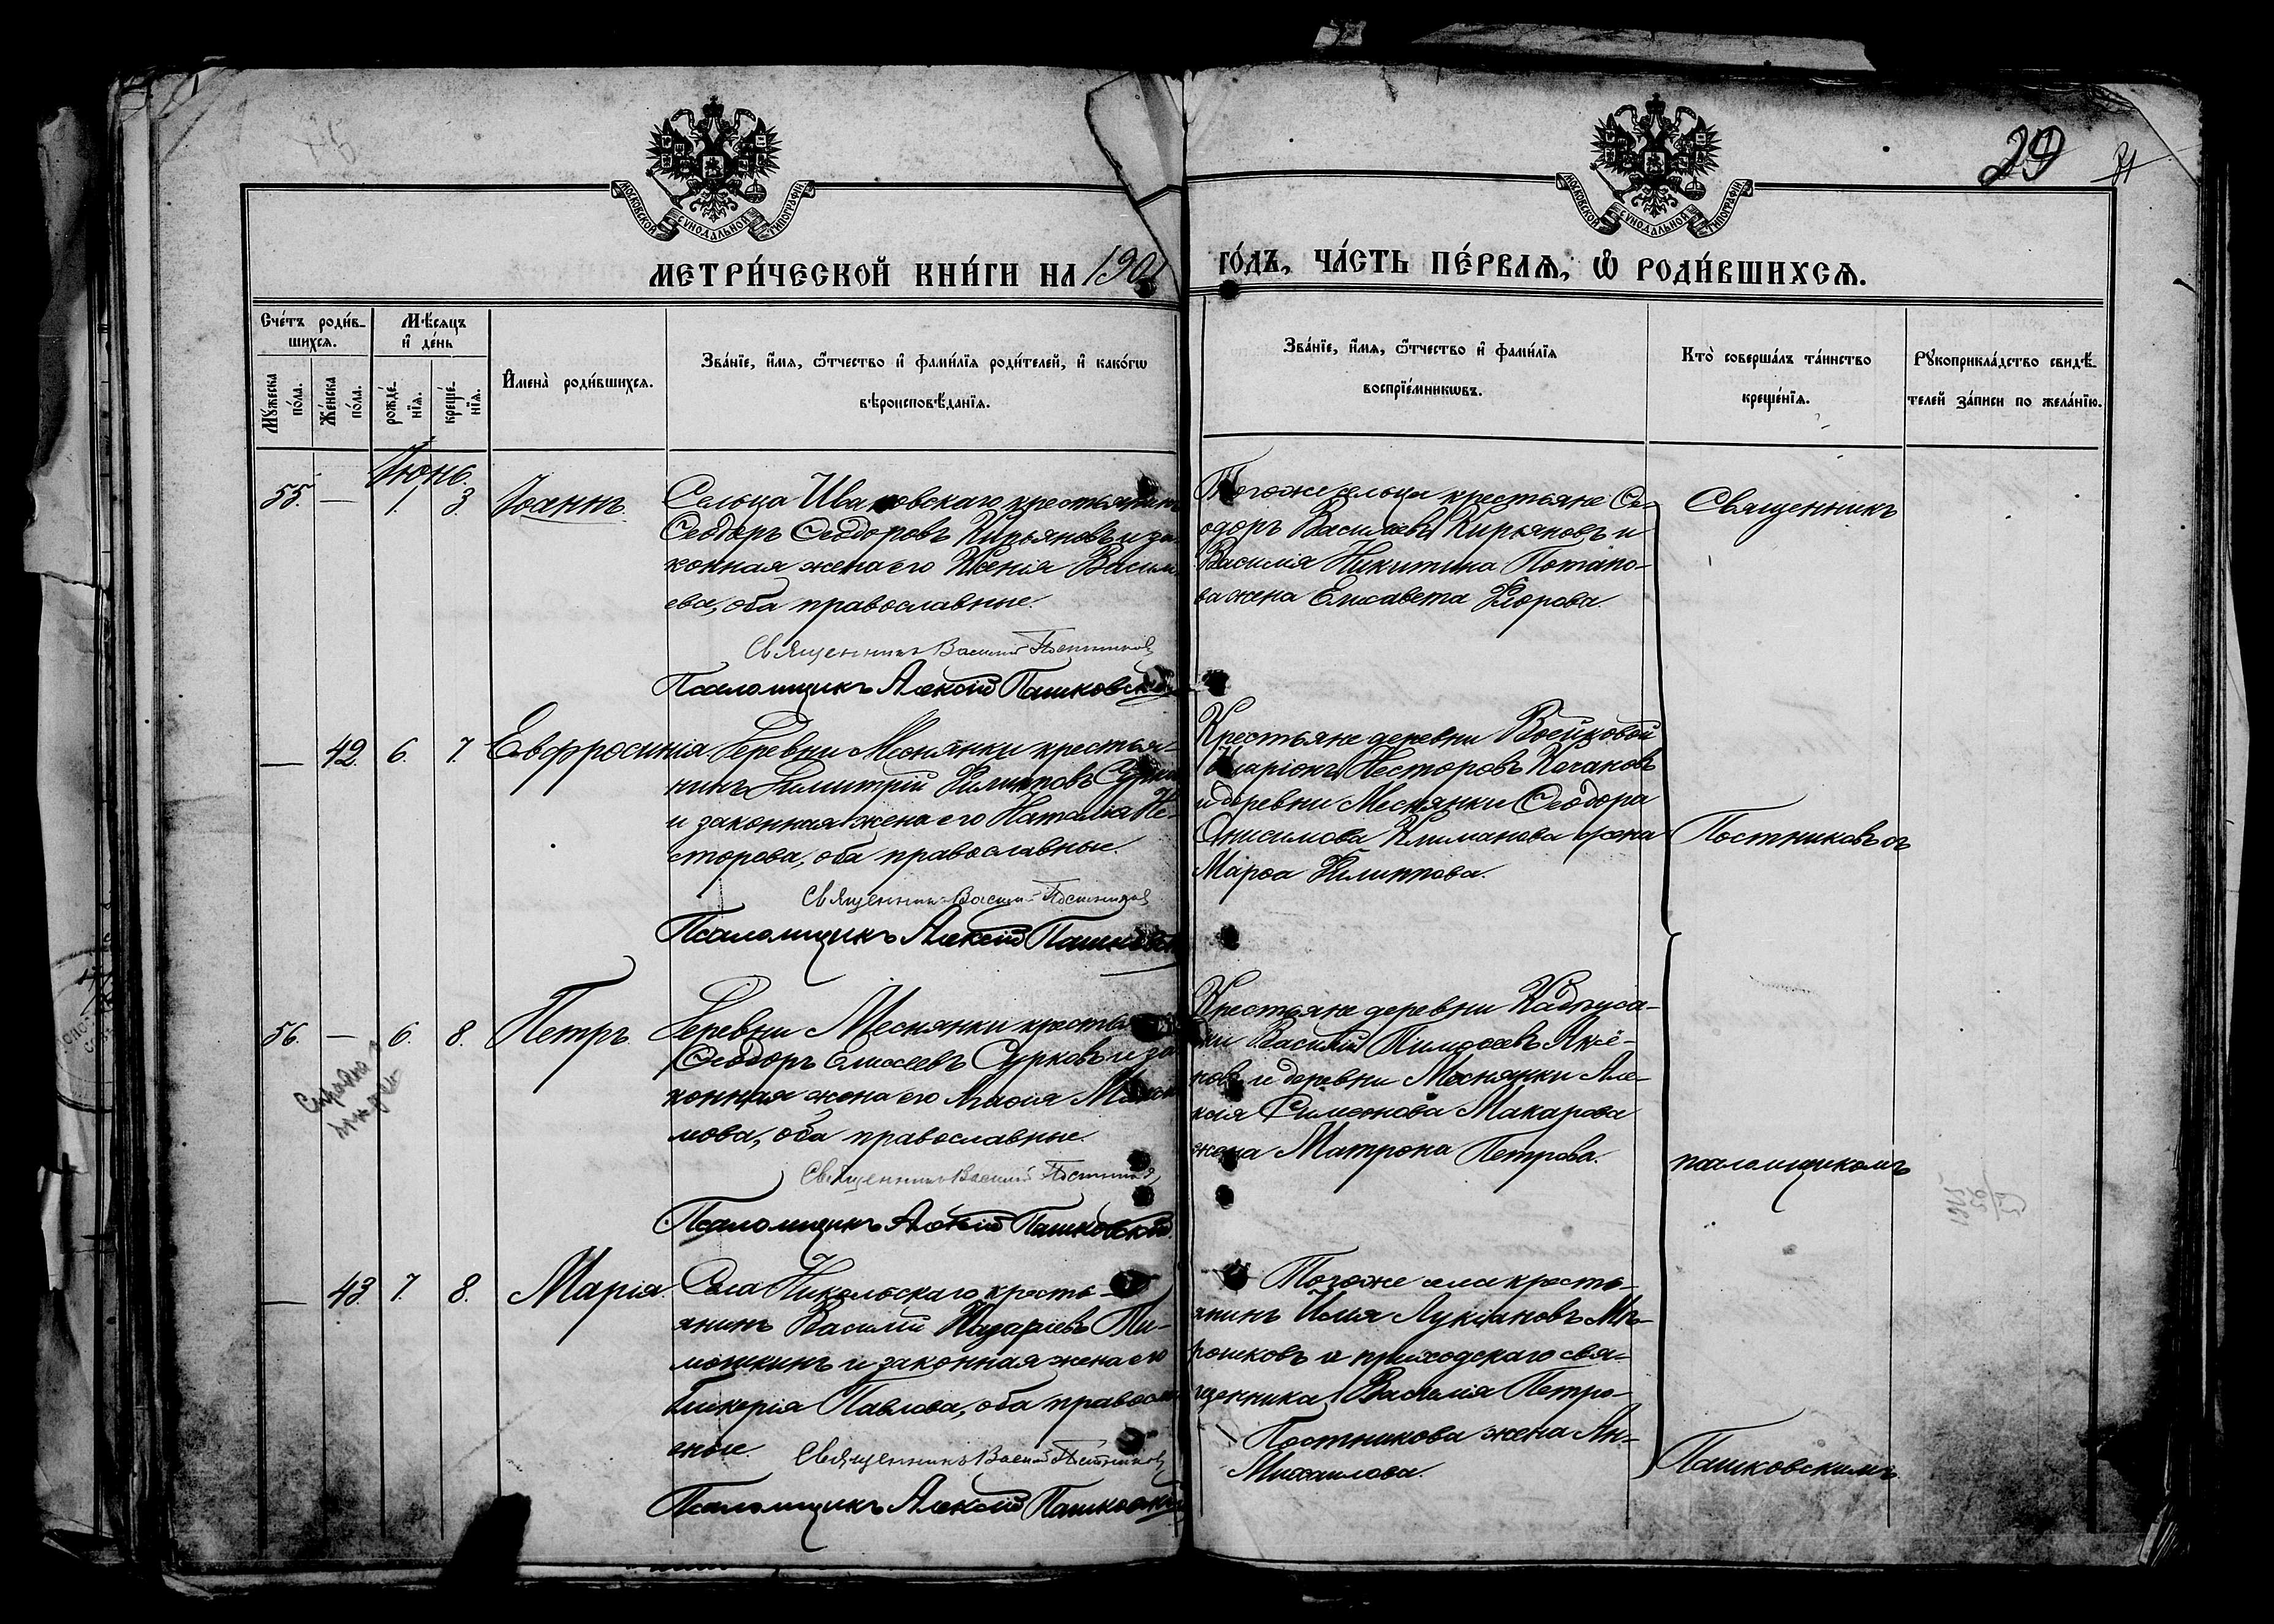 29
МОСКОВСКОЙ СѴНОДАЛЬНОЙ ТИПОГРАФІИ
МОСКОВСКОЙ СѴНОДАЛЬНОЙ ТИПОГРАФІИ
МЕТРИ́ЧЕСКОЙ КНИ́ГИ НА 190
ГО́ДЪ, ЧА́СТЬ ПЕ́РВАѦ, Ѽ РОДИ́ВШИХСѦ.
Сче́тъ роди́в-
шихсѧ.
Мꙋ́жеска
по́ла.
Же́нска
по́ла.
Мѣ́сѧцъ
и҆ де́нь
рожде́-
нїѧ.
креще́-
нїѧ.
И҆мена̀ роди́вшихсѧ.
Зва́нїе, и҆́мѧ, ѻ҆́тчество и҆ фами́лїѧ роди́телей, и҆ како́гѡ
вѣроисповѣ́данїѧ.
Зва́нїе, и҆́мѧ, ѻ҆́тчество и҆ фами́лїѧ
воспрїе́мникѡвъ.
Кто̀ соверша́лъ та́инство
креще́нїѧ.
Рꙋкоприкла́дство свидѣ́-
телей за́писи по жела́нїю.
Іюнь.
55. — 1. 3. Іоаннъ.
Сельца Ивановскаго крестьянинъ
Ѳеодоръ Ѳеодоровъ Кирьяновъ и за-
конная жена его Ксенія Васил
ева, оба православные.
Священникъ Василий Постников
Псаломщикъ Алексій Пашковскій
Тогоже сельца крестьяне Ѳе-
одоръ Васильевъ Кирьяновъ и
Василія Никитина Потапо-
ва жена Елисавета Флорова.
Священникъ
— 42. 6. 7. Евфросинія
Деревни Меснянки крестья-
нинъ Димитрій Филипповъ
и законная жена его Наталія Не-
сторова, оба православные.
Священник Васили Постников
Псаломщикъ Алексій Пашковск
Крестьяне деревни Воейковой
Иларіонъ Несторовъ Качаковъ
и деревни Меснянки Ѳеодора
Онисимова Климанова жена
Марѳа Филиппова.
Постниковъ съ
56. — 6. 8. Петръ.
Деревни Меснянки кресть
Ѳеодоръ Елисеевъ Сурковъ и за
конная жена его Марія
мова, оба православные.
Священникъ Василий Постников
Псаломщикъ Алексій Пашковскій.
Крестьяне деревни
Василій Тимоѳеевъ Аксё-
новъ и деревни Меснянки Але-
ксія Симеонова Макарова
жена Матрона Петрова.
псаломщикомъ
— 43. 7. 8. Марія.
Села Никольскаго кресть-
янинъ Василій Назаріевъ Ти-
мошкинъ и законная жена его
Гликерія Павлова, оба правосла
вные.
Священникъ Василий Постников
Псаломщикъ Алексій Пашковскій
Тогоже села кресть-
янинъ Илія Лукіановъ Мѣ-
рошковъ и приходскаго свя-
щенника Василія Петро-
Постникова жена Ан-
Михаилова.
Пашковскимъ.